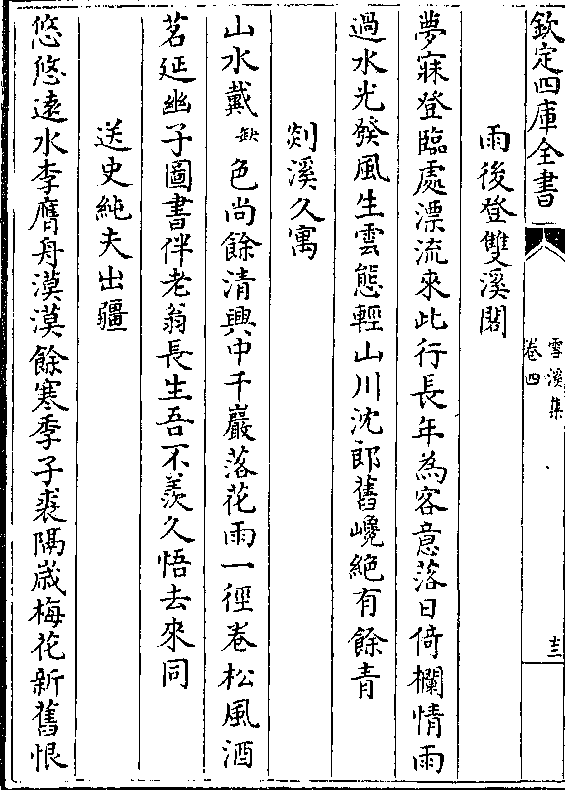 欽定四庫全書
雪溪集
卷四
十三
雨後登雙溪閣
夢寐登臨處漂流來此行長年為客意落日倚欄情雨
過水光發風生雲態輕山川沈郎舊巉絶有餘青
剡溪久寓
山水戴缺色尚餘清興中千巖落花雨一徑卷松風酒
茗延幽子圖書伴老翁長生吾不羨久悟去來同
送史純夫出疆
悠悠逺水李膺舟漠漠餘寒季子裘隔歳梅花新舊恨